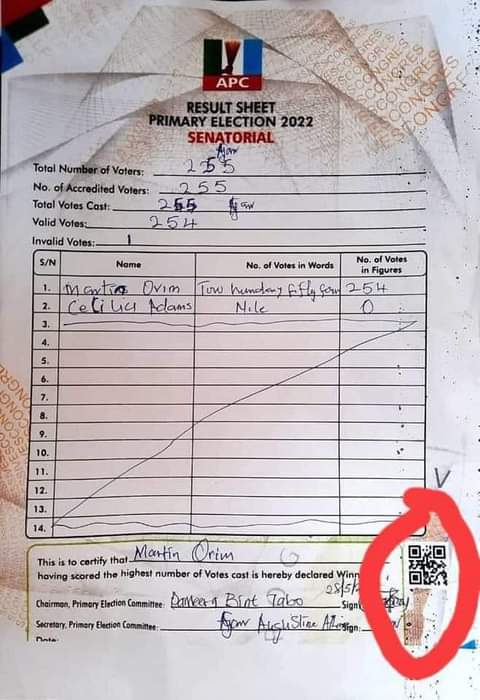 APC
RESULT SHEET
PRIMARY ELECTION 2022
SENATORIAL
Total Number of Voters: 255
No. of Accredited Voters: 255
Total Votes Cast: 255
Valid Votes: 254
Invalid Votes: 1
S/N Name No. of Votes in Words No. of Votes in Figures
1. Martin Orim Tow hundred fifly four 254
2. Cecilia Adams Nile 0
3.
4.
5.
6.
7.
8.
9.
10.
11.
12.
13.
14.
This is to certify that Martin Orim
having scored the highest number of Votes cast is hereby declared Winn
Chairman, Primary Election Committee: Bint Sign
Secretary, Primary Election Committee: Augustine Sign:
Date: